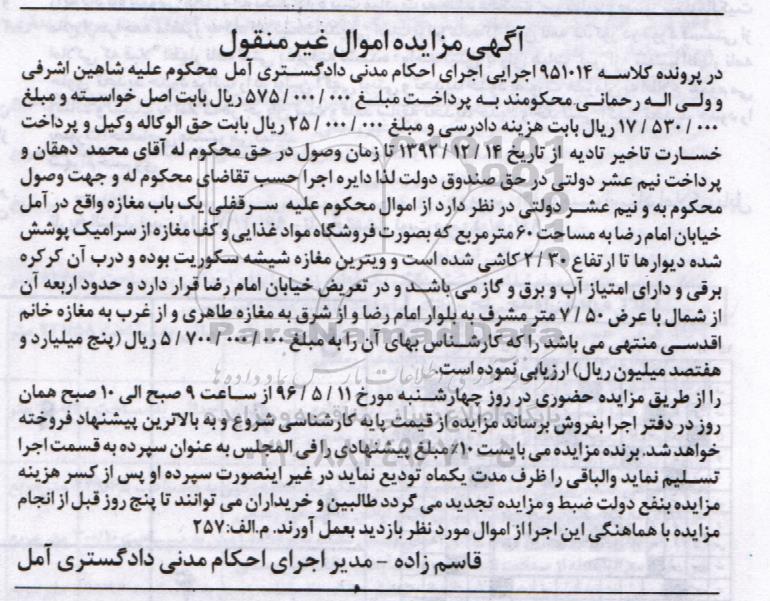 آگهی مزایده اموال غیر منقول
در پرونده کلاسه ۹۵۱۰۱۴ اجرایی اجرای احکام مدنی دادگستری آمل محکوم علیه شاهین اشرفی
و ولی اله رحمانی محکومند به پرداخت مبلغ ۵۷۵/۰۰۰/۰۰۰ ریال بابت اصل خواسته و مبلغ
۱۷/۵۳۰/۰۰۰ ریال بابت هزینه دادرسی و مبلغ ۲۵/۰۰۰/۰۰۰ ریال بابت حق الوکاله وکیل و پرداخت
خسارت تاخیر تادیه از تاریخ ۱۳۹۳/۱۲/۱۴ تا زمان وصول در حق محکوم له آقای محمد دهقان و
پرداخت نیم عشر دولتی در حق صندوق دولت لذا دایره اجرا حسب تقاضای محکوم له و جهت وصول
محکوم به و نیم عشر دولتی در نظر دارد از اموال محکوم علیه سرقفلی یک باب مغازه واقع در آمل
خیابان امام رضا به مساحت ۶۰ مترمربع که بصورت فروشگاه مواد غذایی و کف مغازه از سرامیک پوشش
شده دیوارها تا ارتفاع ۲/۳۰ کاشی شده است و ویترین مغازه شیشه سکوریت بوده و درب آن کرکره
برقی و دارای امتیاز آب و برق و گاز می باشد و در تعریض خیابان امام رضا قرار دارد و حدود اربعه آن
از شمال با عرض ۷/۵۰ متر مشرف به بلوار امام رضا و از شرق به مغازه طاهری و از غرب به مغازه خانم
اقدسی منتهی می باشد را که کارشناس بهای آن را به مبلغ ۵/۷۰۰/۰۰۰/۰۰۰ ریال (پنج میلیارد و
هفتصد میلیون ریال) ارزیابی نموده است
را از طریق مزایده حضوری در روز چهارشنبه مورخ ۹۶/۵/۱۱ از ساعت ۹ صبح الی ۱۰ صبح همان
روز در دفتر اجرا بفروش برساند مزایده از قیمت پایه کارشناسی شروع و به بالاترین پیشنهاد فروخته
خواهد شد. برنده مزایده می بایست ۱۰٪ مبلغ پیشنهادی را فی المجلس به عنوان سپرده به قسمت اجرا
تسلیم نماید والباقی را ظرف مدت یکماه تودیع نماید در غیر اینصورت سپرده او پس از کسر هزینه
مزایده بنفع دولت ضبط و مزایده تجدید می گردد طالبین و خریداران می توانند تا پنج روز قبل از انجام
مزایده با هماهنگی این اجرا از اموال مورد نظر بازدید بعمل آورند. م.الف:۲۵۷
قاسم زاده - مدیر اجرای احکام مدنی دادگستری آمل
ParsNamadData